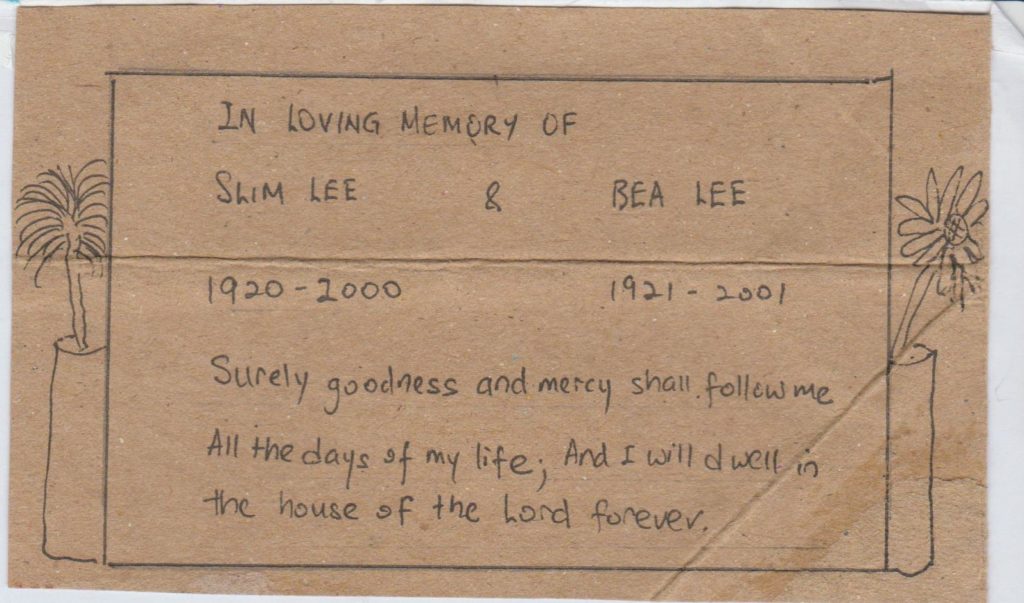 IN LOVING MEMORY OF
SLIM LEE & BEA LEE
1920 - 2000 1921 - 2001
Surely goodness and mercy shall follow me
All the days of my life; And I will dwell in
the house of the Lord forever.